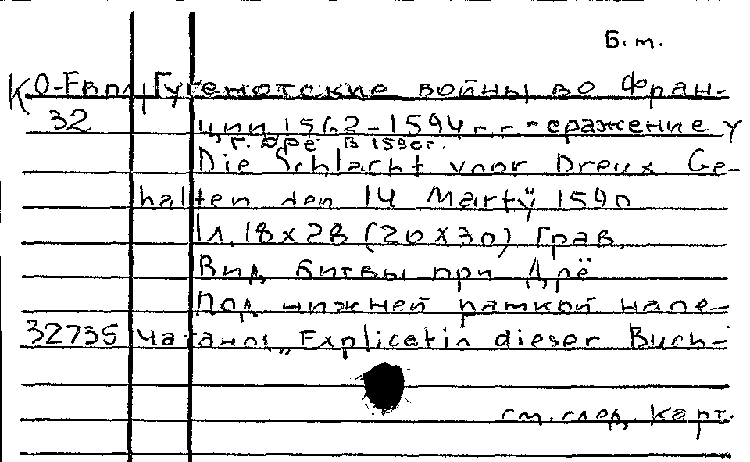 Б.м.
К О-Евпл Гугенотские войны во Фран-
32 ции 1562-1594 г.г. - сражение у
г. Дре в 1590г.
Die Schlacht voor Dreux Ge-
halten den 14 Martÿ 1590
1л. 18х28 (20х30) Грав.
Вид битвы при Дрё
Под нижней рамкой напе-
32735 чатано: „Explicatin dieser Buch-
см. след. карт.